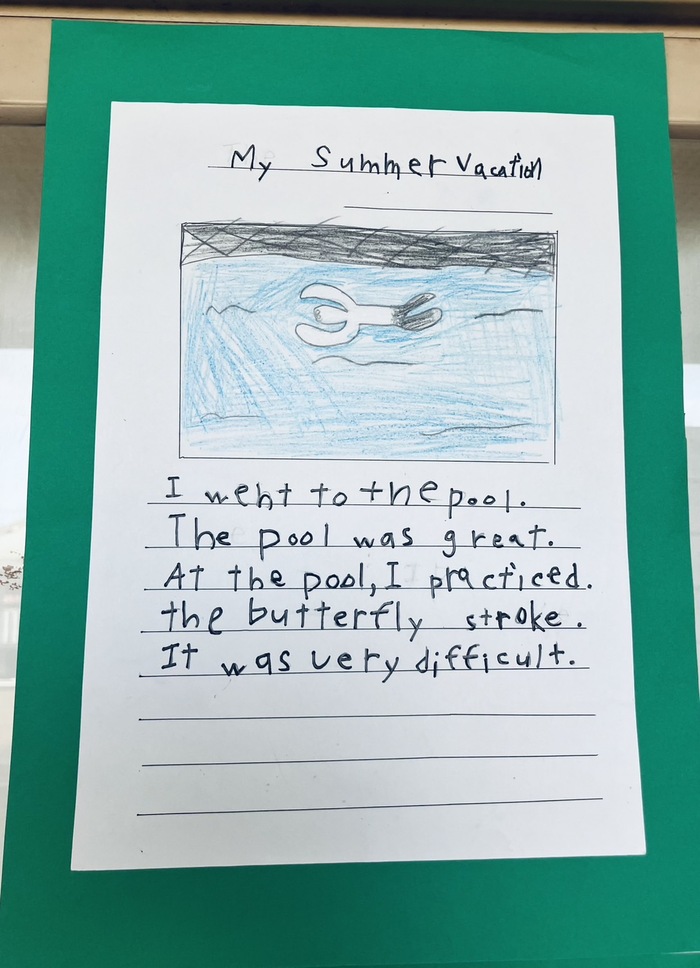 My Summer Vacation
I went to the pool.
The pool was great.
At the pool, I practiced.
the butterfly stroke.
It was very difficult.